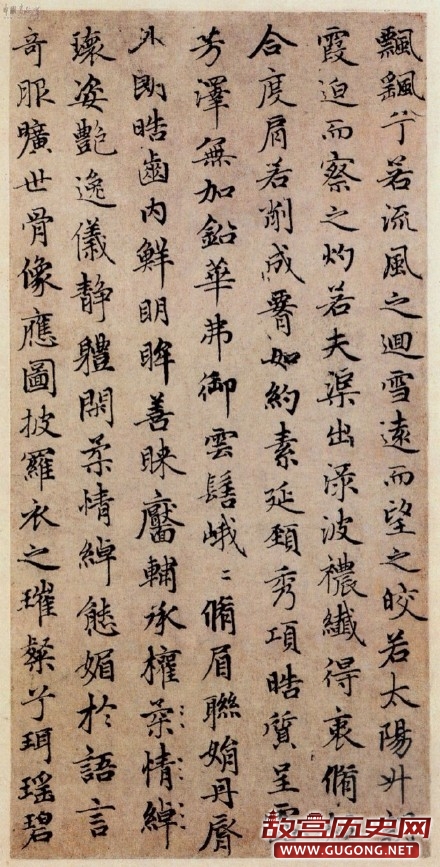 飄飖兮若流風之迴雪遠而望之皎若太陽升
霞迫而察之灼若夫渠出渌波襛纖得衷脩
合度肩若削成如約素延頸秀項皓質呈
芳澤無加鉛華弗御雲髻峨〻脩眉聯娟丹脣
外朗皓齒内鮮明眸善睞靨輔承權柔情綽
瓌姿艷逸儀静軆閑柔情綽態媚於語言
奇服曠世骨像應圖披羅衣之璀粲兮珥瑶碧
故宫历史网
WWW.GUGONG.NET